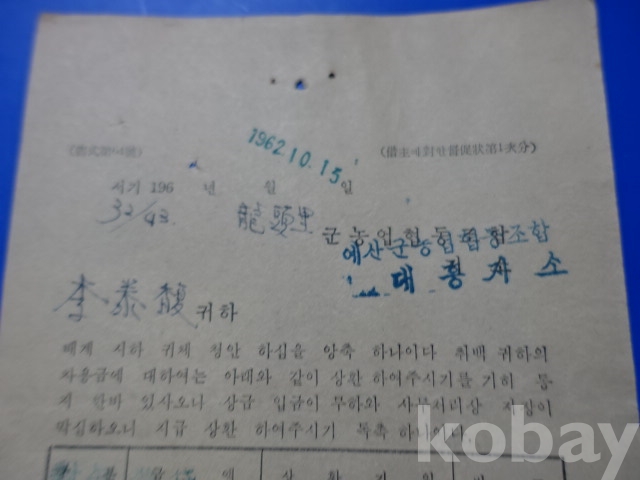 1962.10.15
(借主에對한督促狀第1次分)
서기 196 년 월 일
32/43. 龍頭里 군농업협동조합
예산군농업협동조합
李泰馥 귀하
배계 시하 귀체 청안 하심을 앙축 하나이다 취백 귀하의
차용금에 대하여는 아래와 같이 상환 하여주시기를 기히 통
지 한바 있사오나 상금 입금이 무하와 사무처리상 지장이
막심하오니 지급 상환 하여주시기 독촉 하나이다
kobay